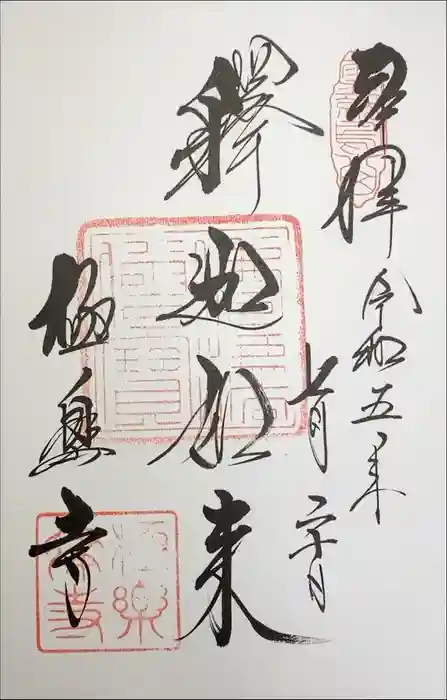 奉拝
令和五年
七月二十日
釋迦如来
極楽寺
極樂寺